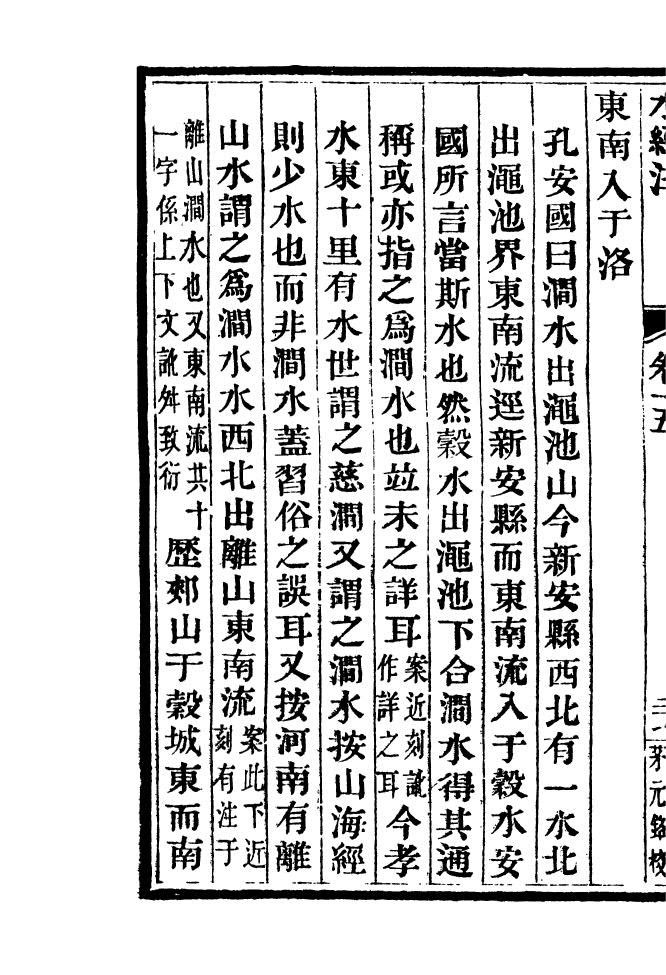 水經注 卷十五
東南入于洛
孔安國曰澗水出澠池山今新安縣西北有一水北
出澠池界東南流逕新安縣而東南流入于穀水安
國所言當斯水也然穀水出澠池下合澗水得其通
稱或亦指之爲澗水也竝未之詳耳案近刻訛作詳之耳今孝
水東十里有水世謂之慈澗又謂之澗水按山海經
則少水也而非澗水蓋習俗之誤耳又按河南有離
山水謂之爲澗水水西北出離山東南流案此下近刻有注于
離山澗水也又東南流共十一字係上下文訛舛致衍歷郟山于穀城東而南